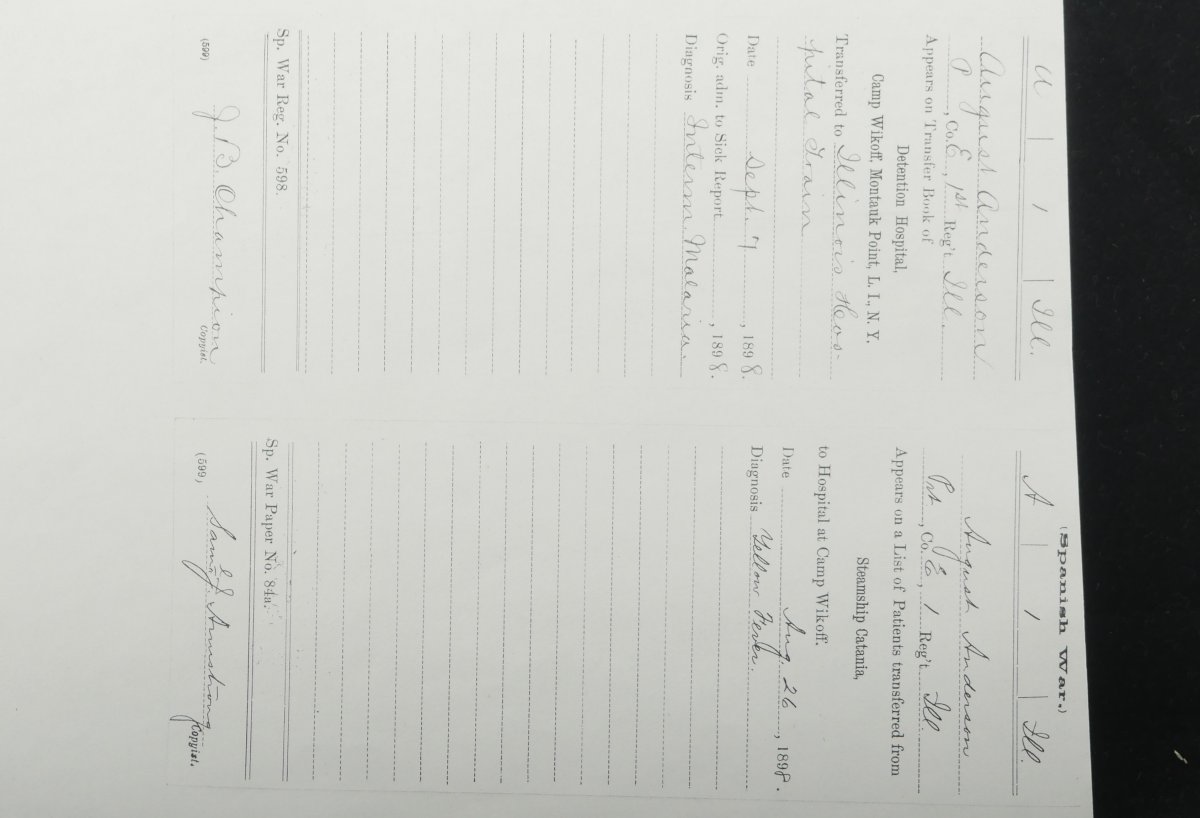 (Spanish War.)
A | 1 | Ill.
August Anderson
Pvt, Co. E, 1 Reg't. Ill.
Appears on a List of Patients transferred from
Steamship Catania,
to Hospital at Camp Wikoff.
Date Aug. 26, 1898.
Diagnosis Yellow Fever.
Sp. War Paper No. 84a.
(599)
Sam'l J. Armstrong
Copyist.
1 | Ill.
August Anderson
P, Co. E, 1st Reg't. Ill.
Appears on Transfer Book of
Detention Hospital,
Camp Wikoff, Montauk Point, L. I., N. Y.
Transferred to Illinois Hos-
pital Train
Date Sept. 7, 1898.
Orig. adm. to Sick Report, 1898.
Diagnosis Interm. Malaria.
Sp. War Reg. No. 598.
(599)
J. B. Champion
Copyist.